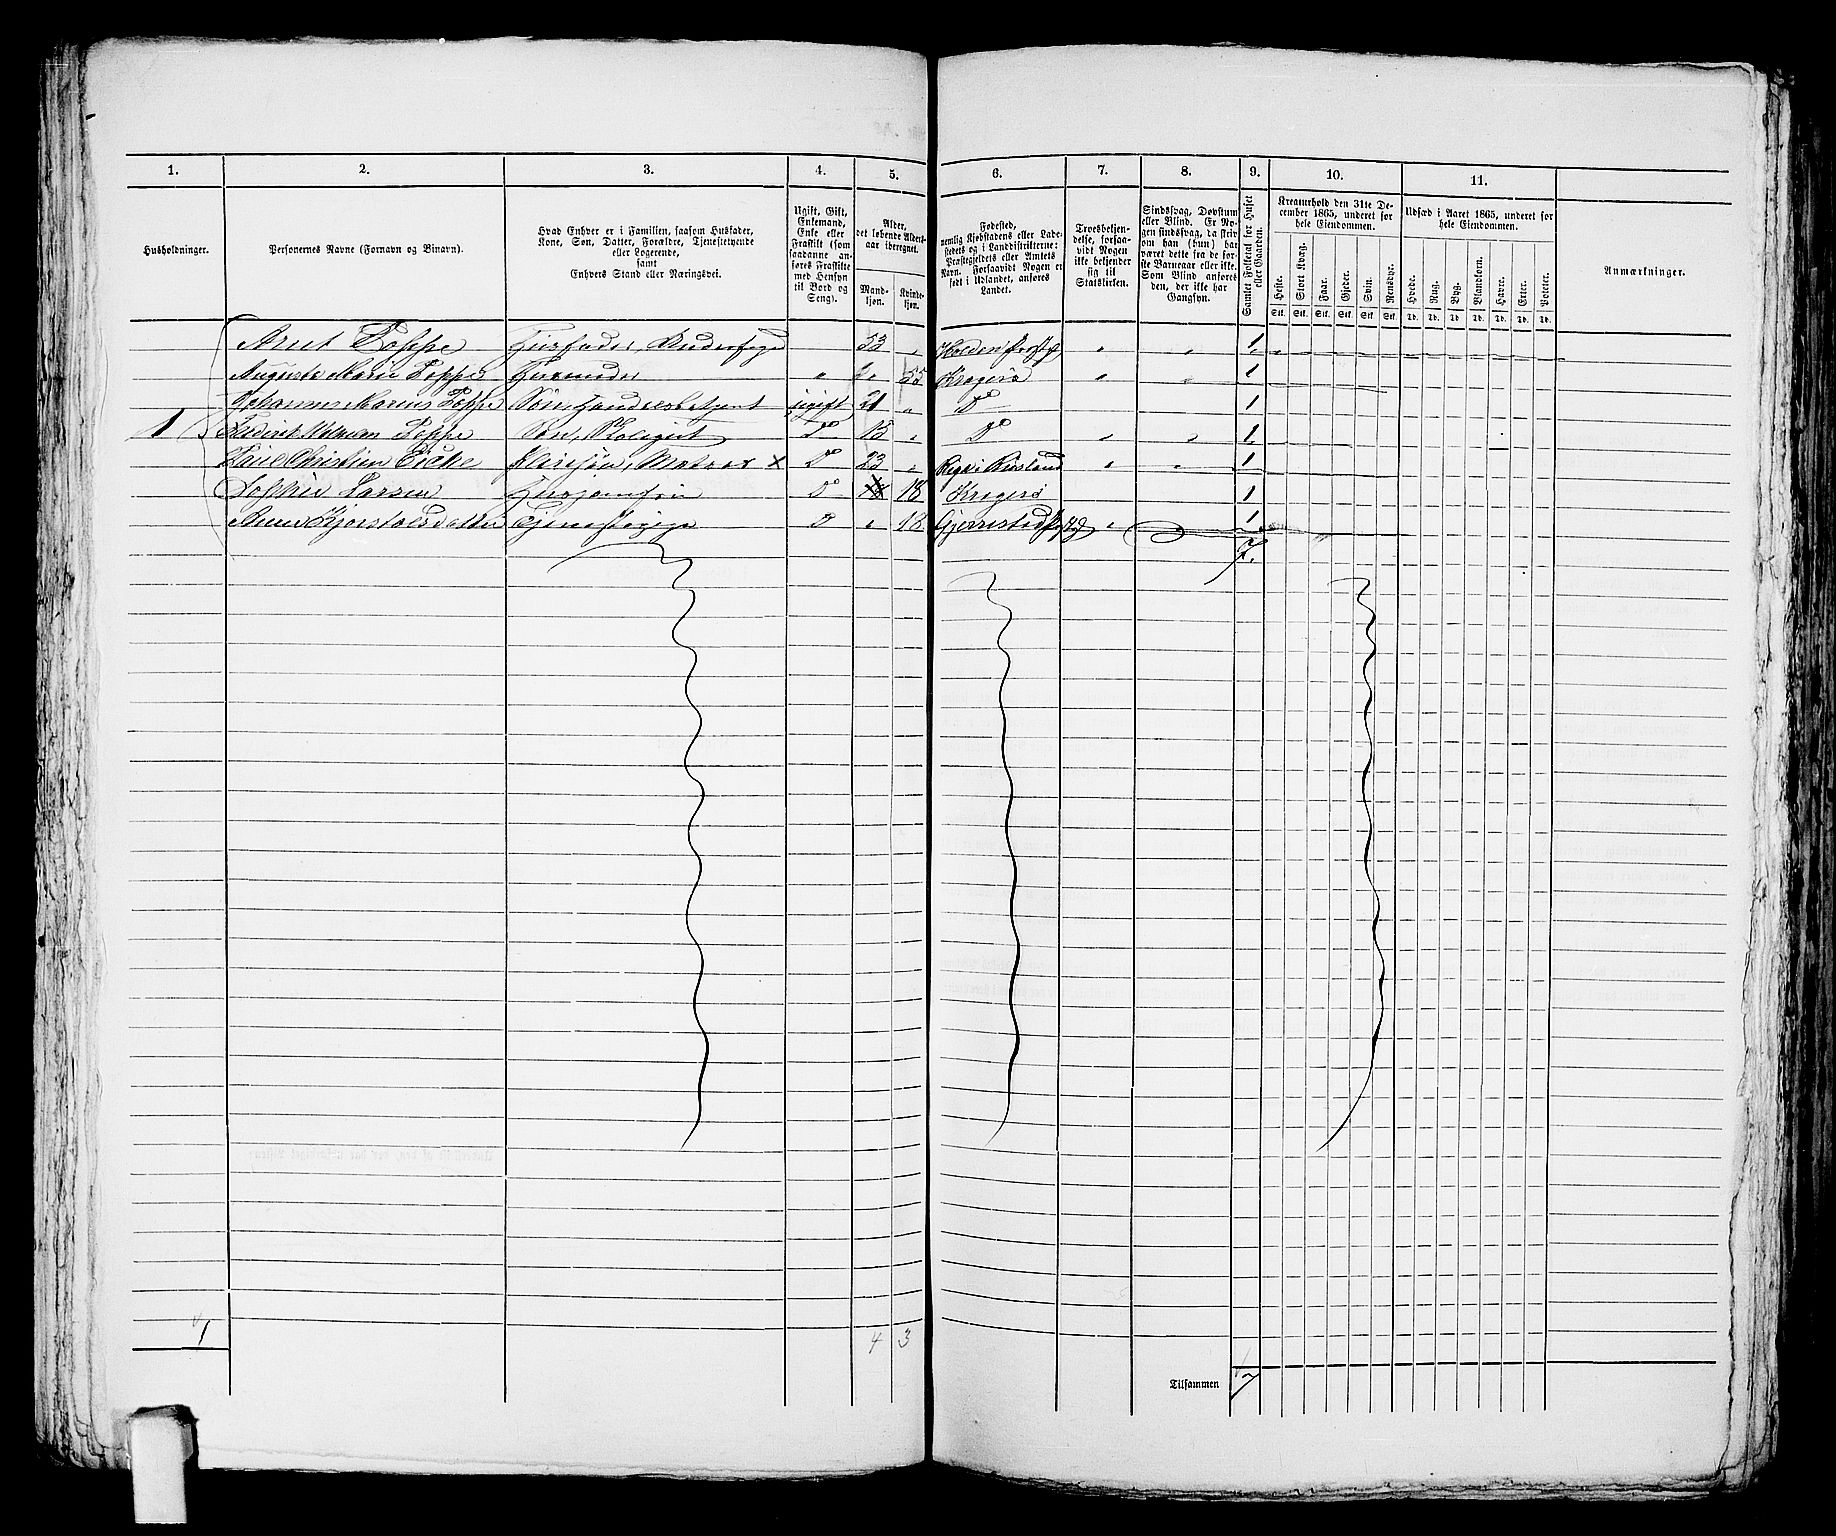 1. 2. 3. 4. 5. 6. 7. 8. 9. 10. 11.
Husholdninger.
Personernes Navne (Fornavn og Binavn).
Hvad Enhver er i Familien, saasom Husfader,
Kone, Søn, Datter, Forældre, Tjenestetyende
eller Logerende,
samt
Enhvers Stand eller Næringsvei.
Ugift, Gift,
Enkemand,
Enke eller
Fraskilt (som
saadanne an-
føres Fraskilte
med Hensyn
til Bord og
Seng).
Alder,
det løbende Alders-
aar iberegnet.
Mand-
kjøn.
Kvinde-
kjøn.
Fødested,
nemlig Kjøbstadens eller Lade-
stedets og i Landdistrikterne:
Præstegjeldets eller Amtets
Navn. Forsaavidt Nogen er
født i Udlandet, anføres
Landet.
Troesbekjen-
delse, forsaa-
vidt Nogen
ikke bekjender
sig til
Statskirken.
Sindssvag, Døvstum
eller Blind. Er No-
gen sindssvag, da skriv
om han (hun) har
været dette fra de før-
ste Barneaar eller ikke.
Som Blind anføres
den, der ikke har
Gangsyn.
Samlet Folketal for Huset
eller Gaarden.
Kreaturhold den 31te De-
cember 1865, underet for
hele Eiendommen.
Heste. Stort Kvæg. Faar. Gjeder. Svin. Rensdyr.
Stk. Stk. Stk. Stk. Stk. Stk.
Udsæd i Aaret 1865, underet for
hele Eiendommen.
Hvede. Rug. Byg. Blandkorn. Havre. Erter. Poteter.
Td. Td. Td. Td. Td. Td. Td.
Anmærkninger.
Arnt Poppe Husfader, 53 " Holden Præstg " " 1
Auguste Marie Poppe Husmoder " " 55 Kragerø " " 1
Johannes Marius Poppe Søn, Handelsbetjent ugift 21 " Do 1
1 Poppe Søn, Do 15 " Do " " 1
Christian Eicke Pleiesøn, Matros × Do 23 " Riga i Rusland " " 1
Sophie Larsen Husjomfru Do 18 Kragerø 1
Kjostolsdatter Tjenestepige D " 18 Gjerrestad Præstg " " 1
7.
1 4 3
Tilsammen 7